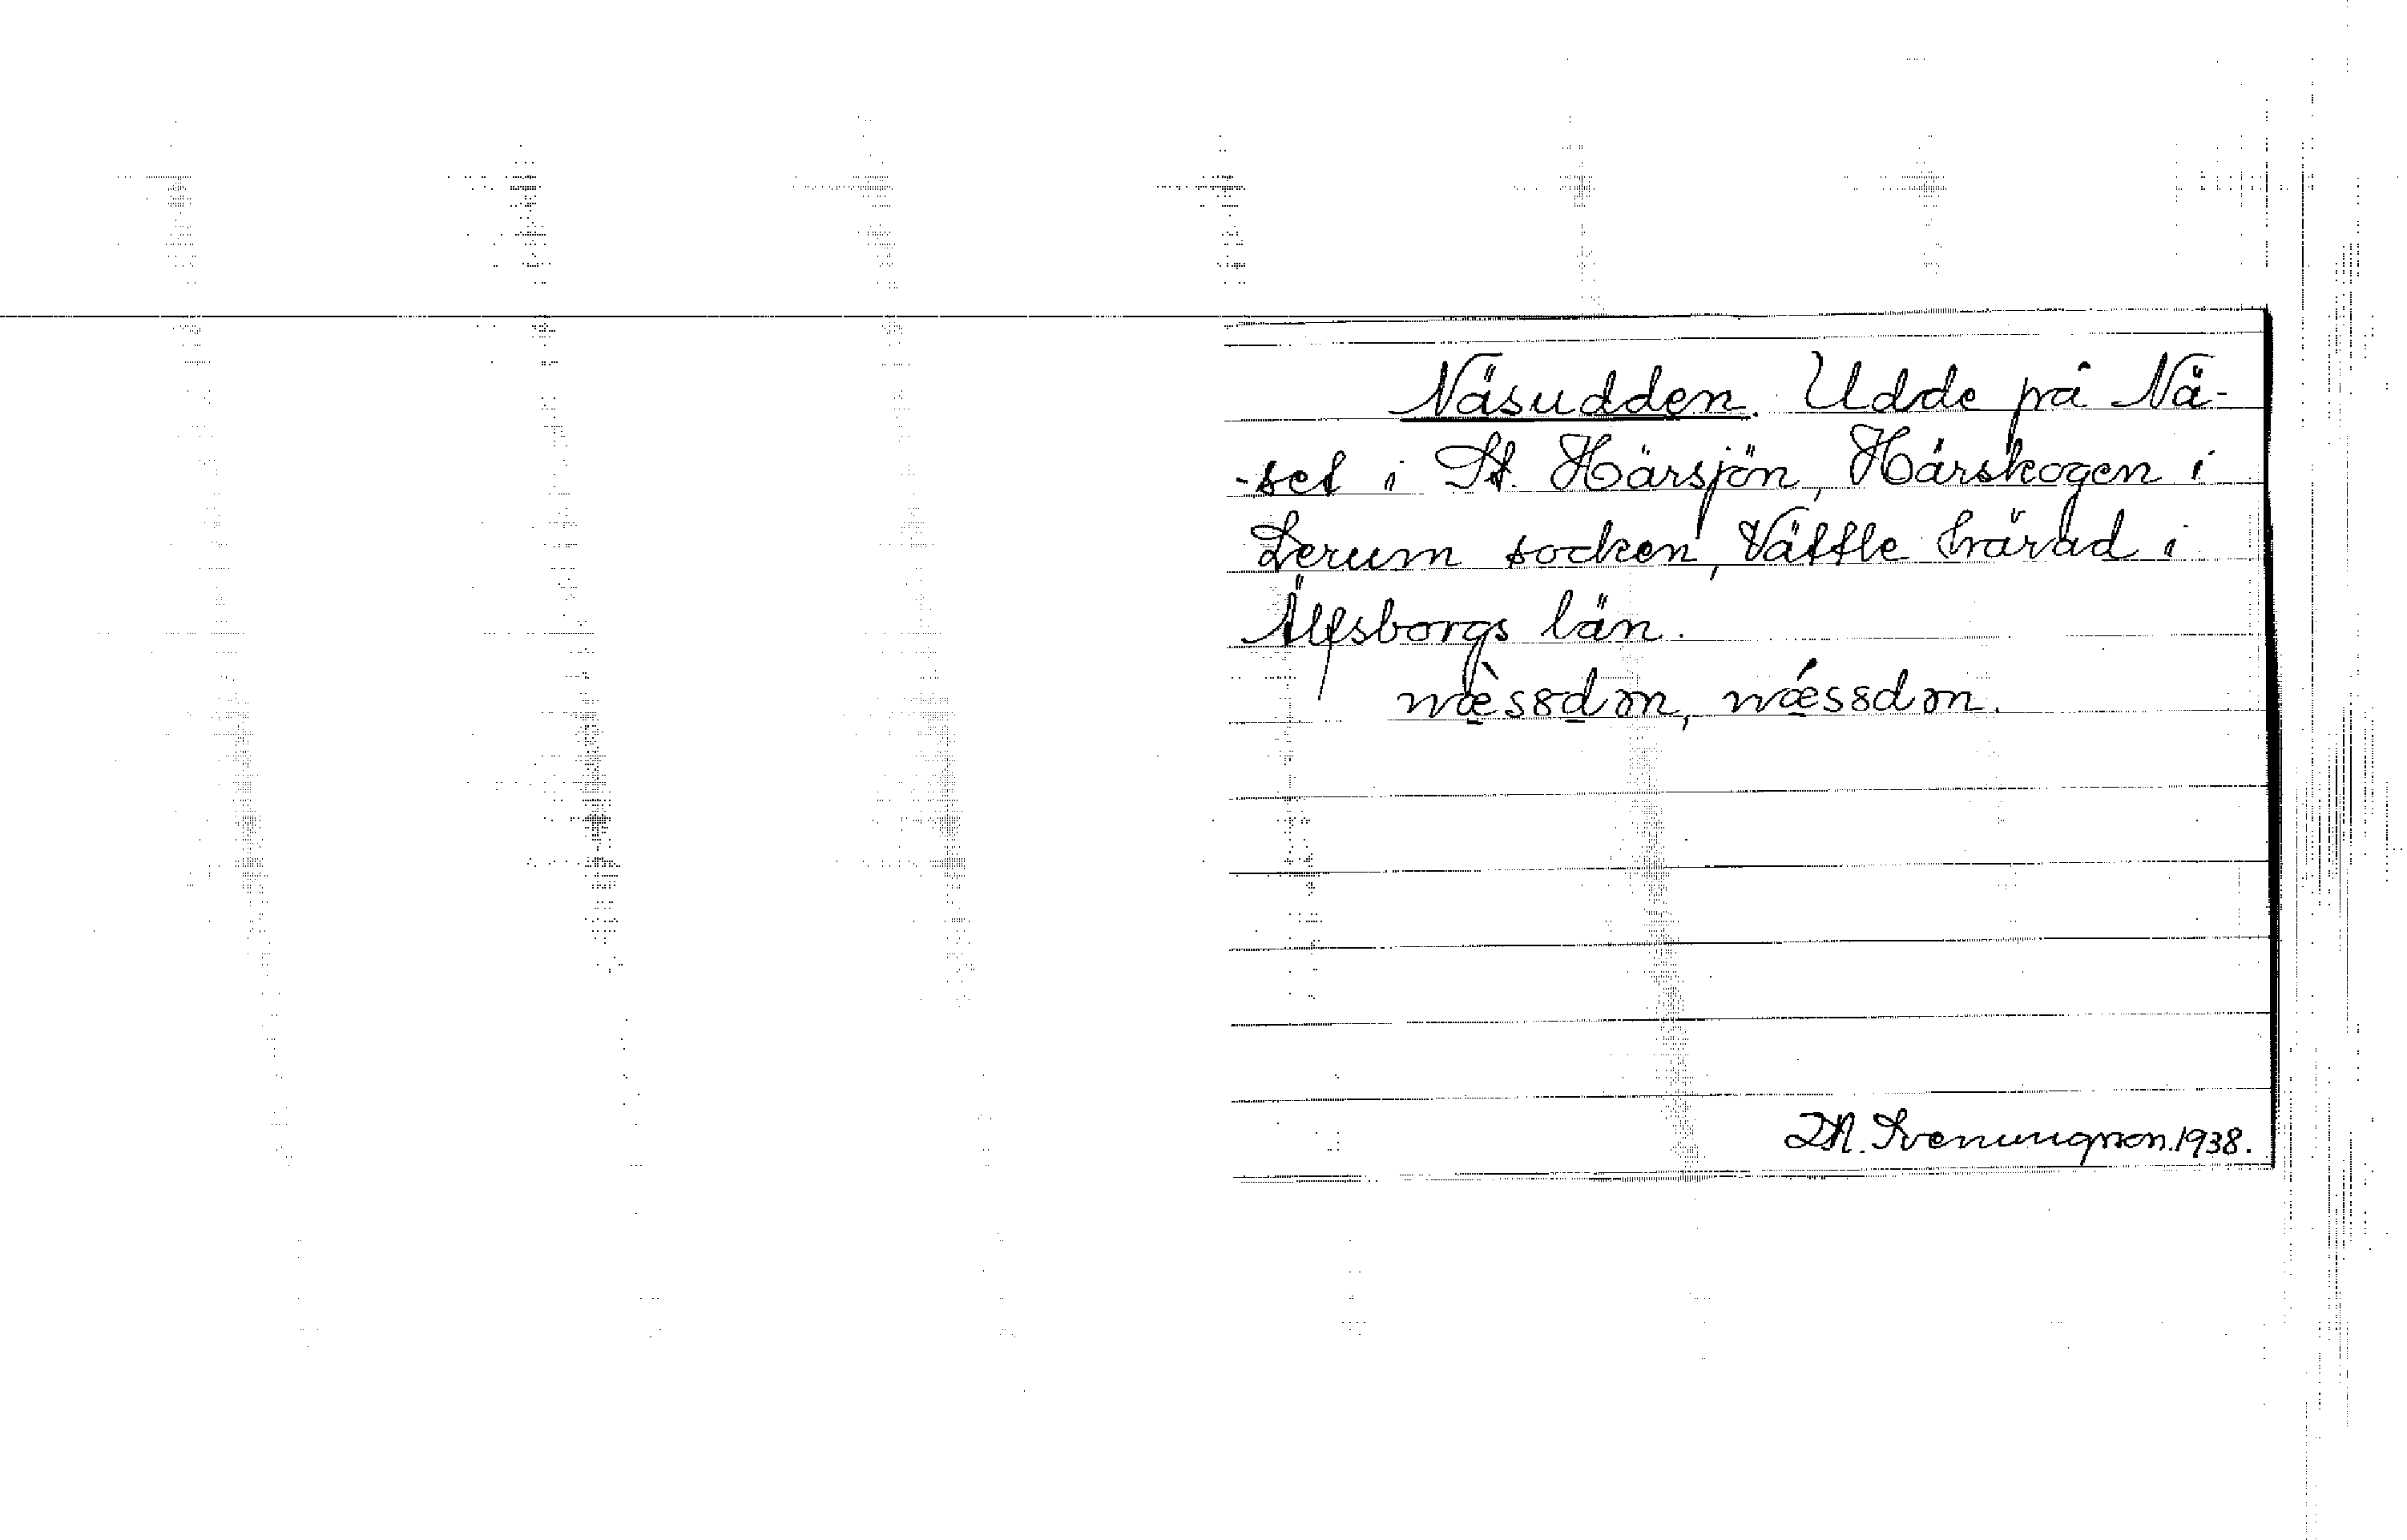 Näsudden. Udde på Nä-
-set i St. Härsjön, Härskogen i
Lerum socken, Vättle härad i
Älfsborgs län.
næ̀s8dən, nǽs8dən.
Svenungsson. 1938.